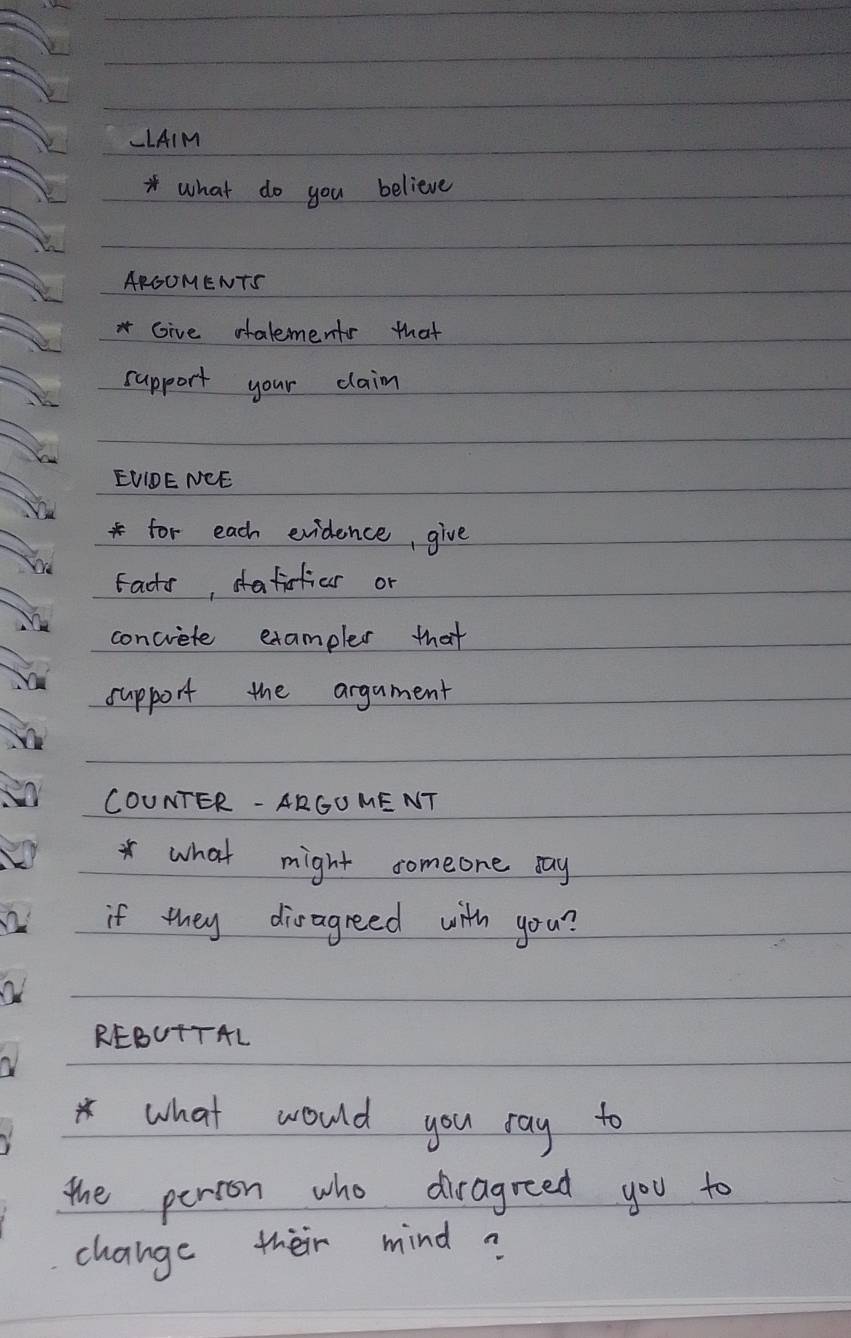 CLAIM
* what do you believe
ARGUMENTS
* Give statements that
support your claim
EVIDENCE
* for each evidence, give
facts, statistics or
concrete examples that
support the argument
COUNTER - ARGUMENT
* what might someone say
if they disagreed with you?
REBUTTAL
* what would you say to
the person who disagreed you to
change their mind?